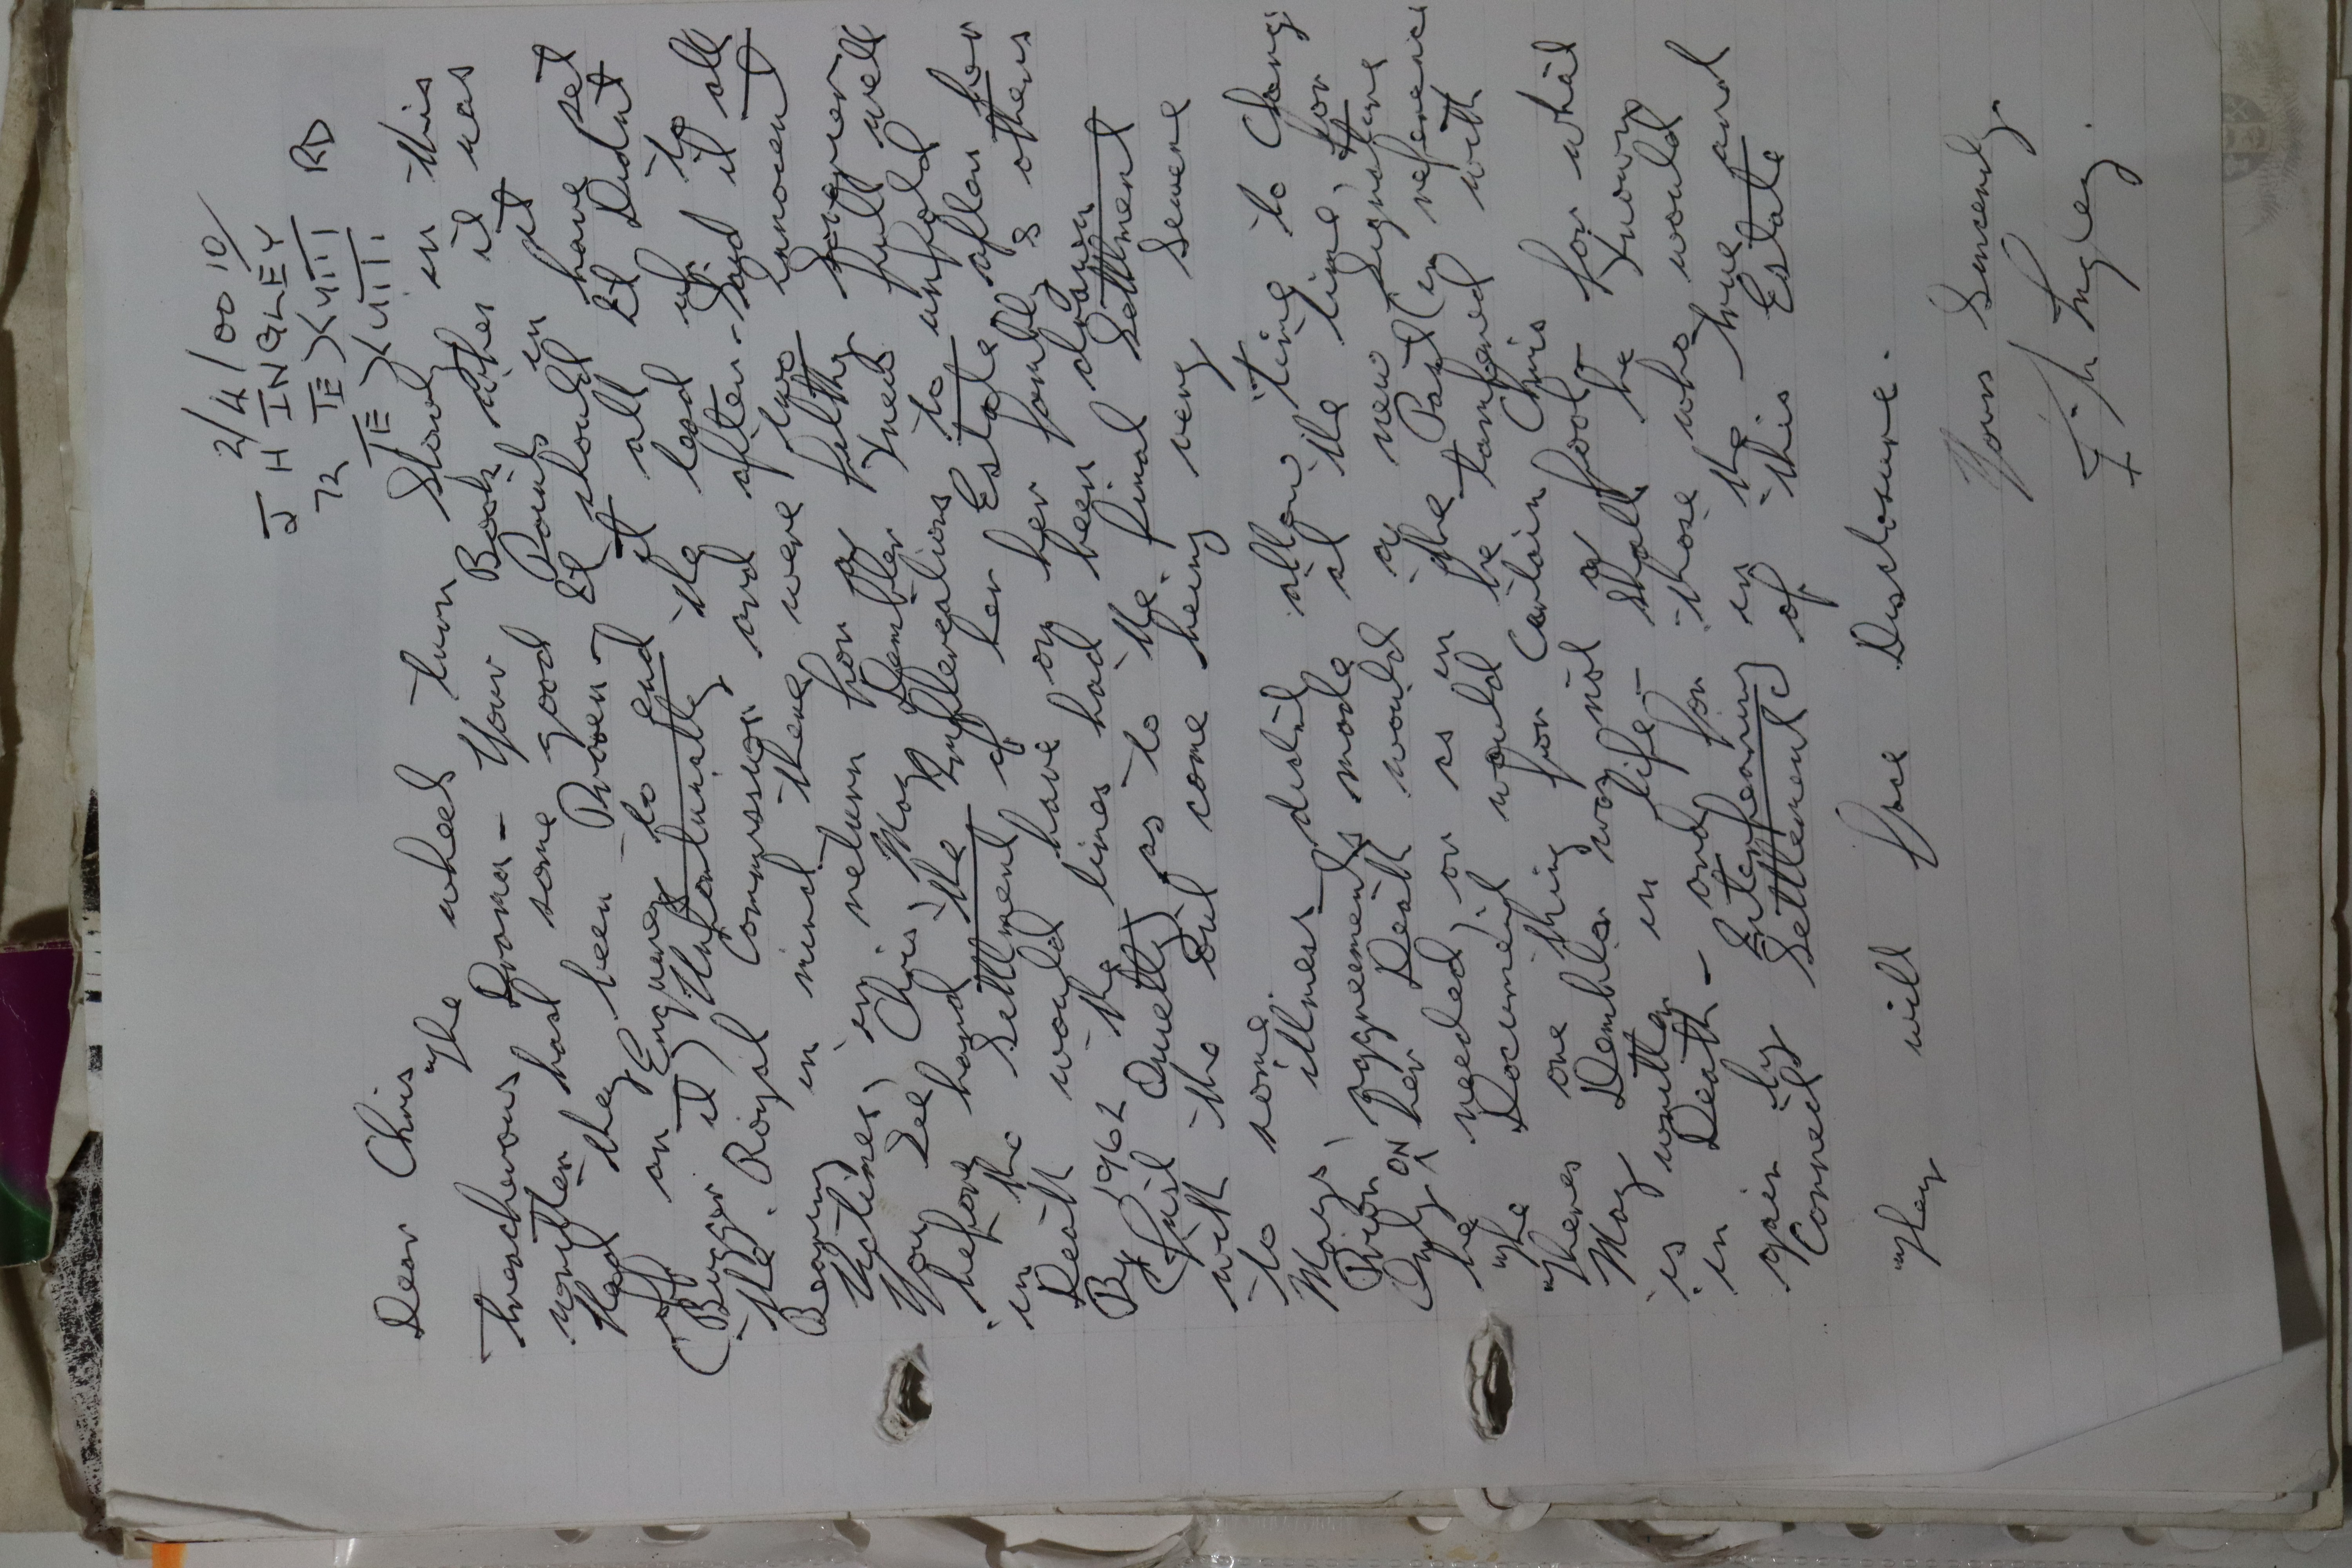 2/4/00 10/
J H INGLEY
72 TE XVIII RD
TE XVIII
Dear Chris
The wheel turn slowly in this
treacherous Drama - Your Book when it was
written had some good Points in it
Had they been Proven - It should have set
off an Enquirey to it all It Didnt
(Bugger it) Unfortunatley end the lead up to
the Royal Commission and after - Said it all
Bearing in mind there were two innocent
Victims, in return for a filthy Sovereign
You See Chris, May Dembler knew full well
before hand the Rufferealions to unfold
in the Settlment of her Estate after her
Death would have on her family & others
By 1962 the lines had been drawn
Just Quietly as to the final Settlment
with the Out come being very Severe
to some.
Mays illness didnt allow time to Change
Prior agreements made at the time, for
Only ON her Death would a new signature
be needed, or as in the Past (in referenice
The Document would be tampered with
Theres one thing for Certain Chris
May Dembler was not a fool for what
is written in life - shall be known
in Death - and for those who would
gain by Interfearing in the true and
Correct Settlement of this Estate
They will face Disclosure.
Yours Sincerely
J. H Ingley.